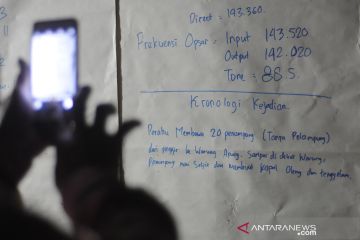 Direct = 143.360.
Frekuensi Opsar = Input 143.520
Output 142.020
Tone = 88.5
Kronologi Kejadian
Perahu Membawa 20 penumpang (Tanpa Pelampung)
dari pinggir ke Warung Apung, Sampai di dekat Warung,
Penumpang mau Selfie dan Membuat Kapal Oleng dan tenggelam.
ANTARANEWS
.com